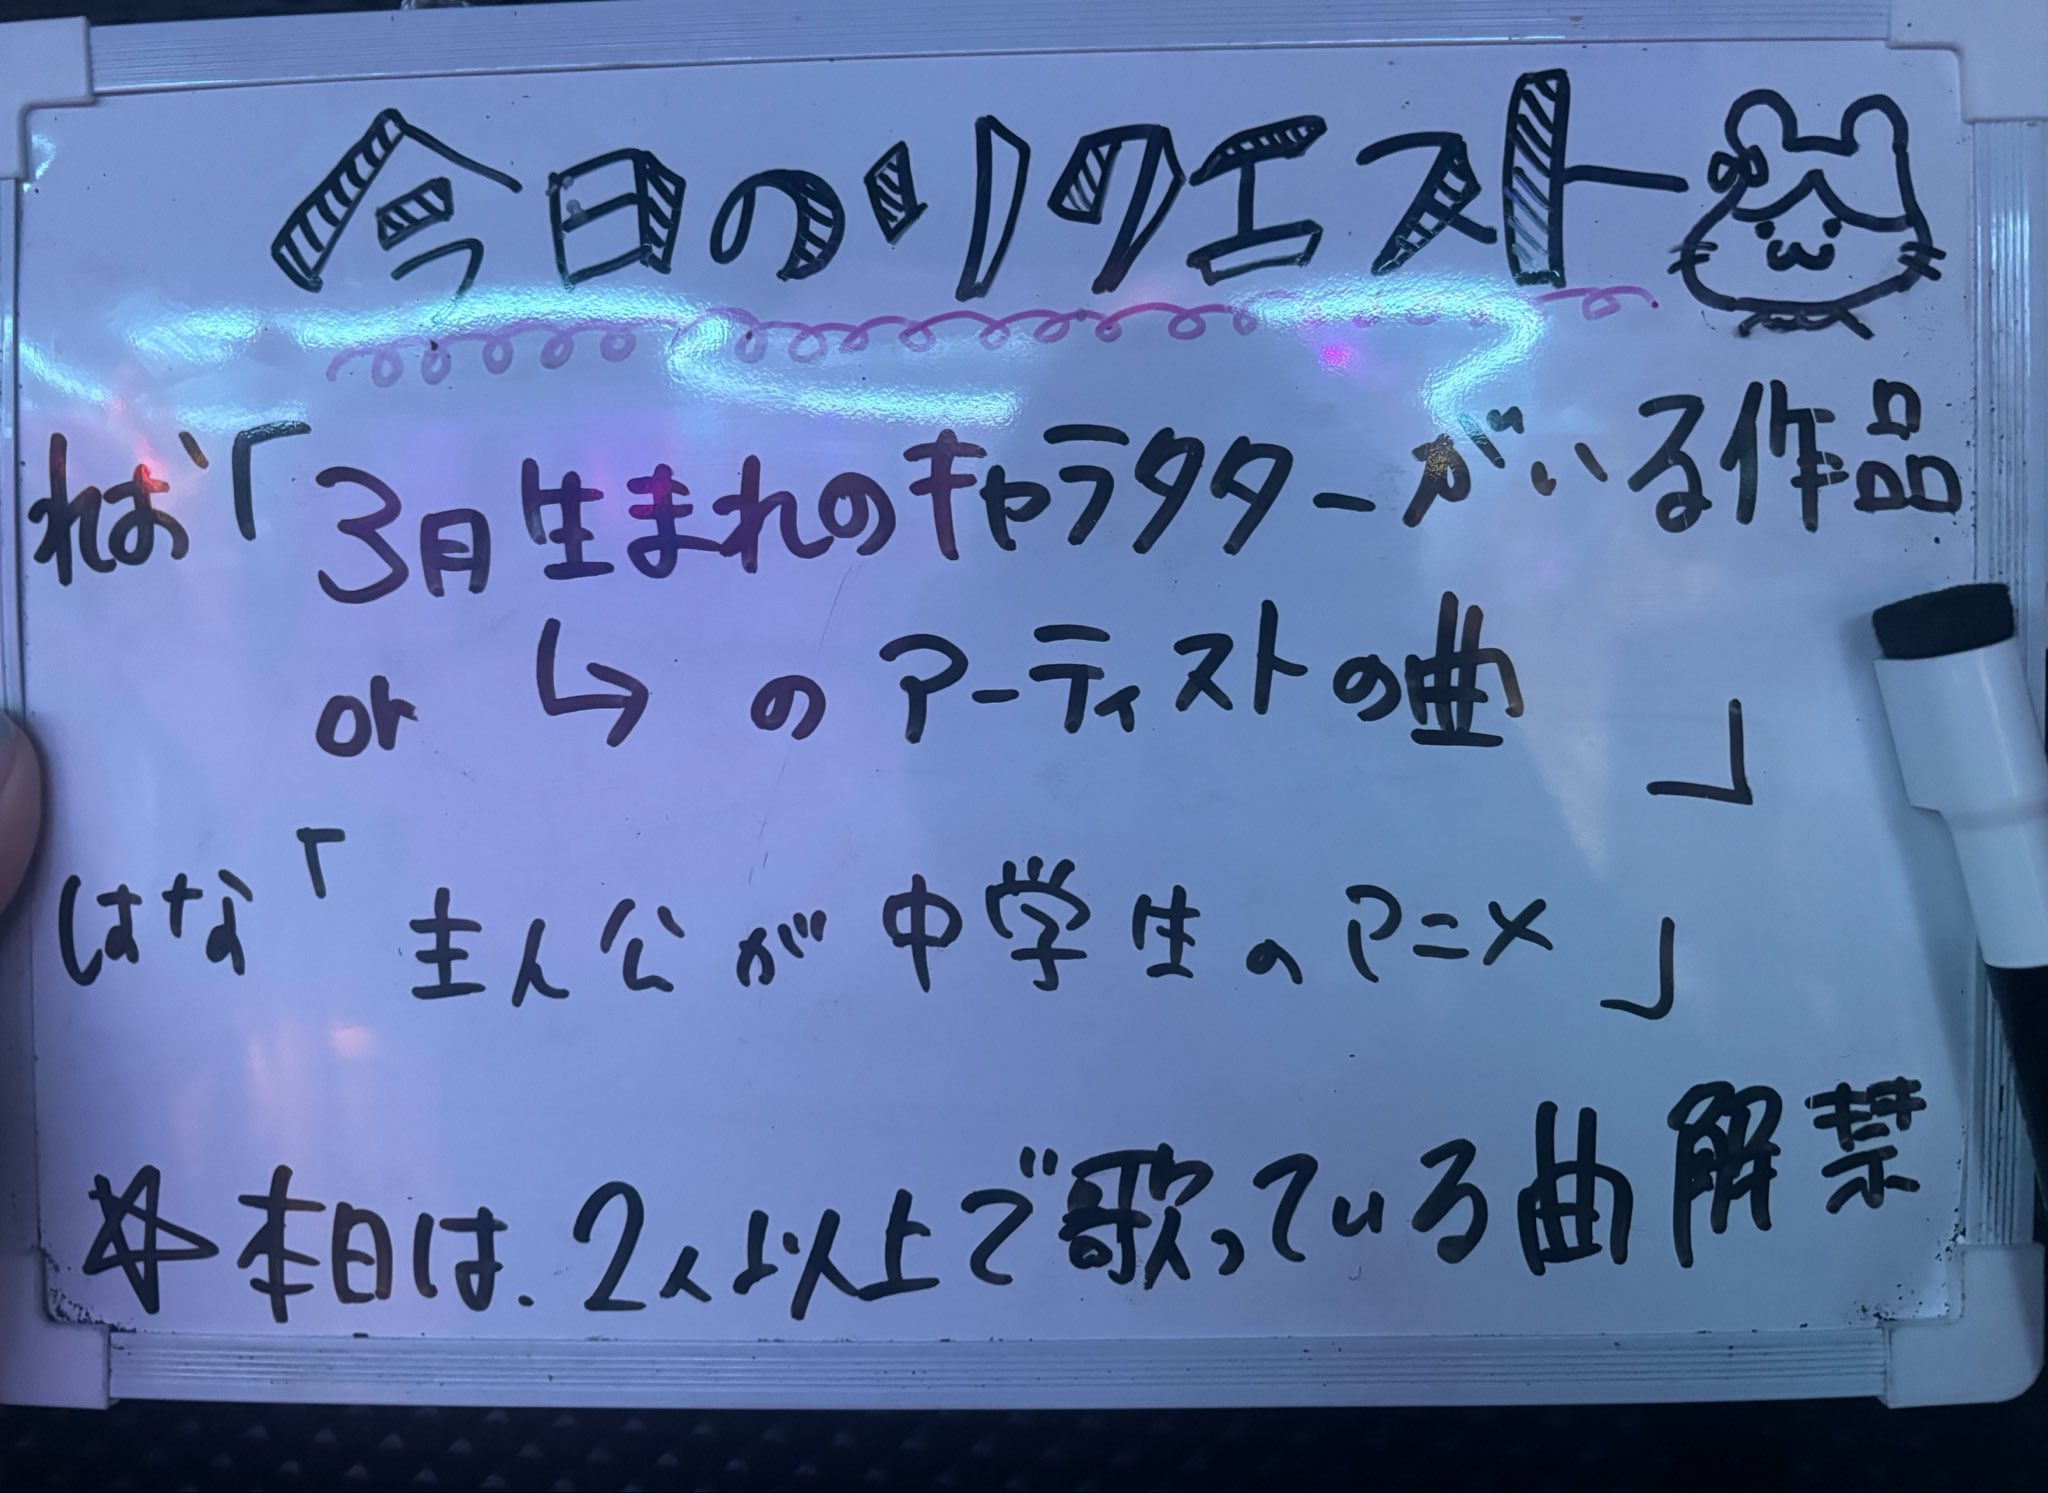 今日のリクエスト
れお「3月生まれのキャラクターがいる作品
or ↳ のアーティストの曲 」
はな「主人公が中学生のアニメ」
☆本日は、2人以上で歌っている曲解禁